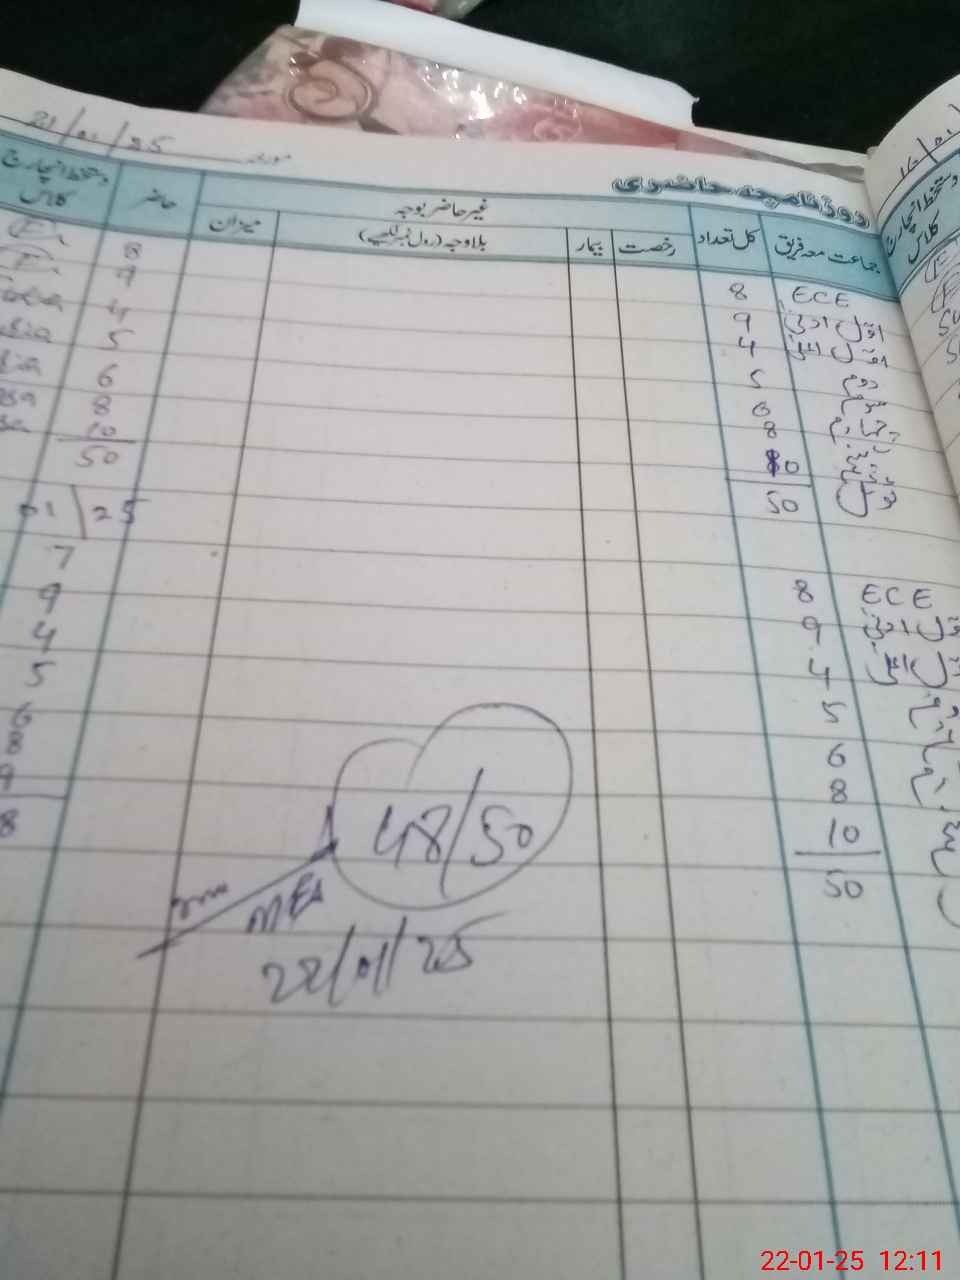 21/01/25 مورخہ
روزنامچہ حاضری
جماعت معہ فریق کل تعداد غیر حاضر بوجہ حاضر دستخط انچارج کلاس
رخصت بیمار بلاوجہ (رول نمبر لکھیے) میزان
ECE 8 8
اول ادنیٰ 9 9
اول اعلیٰ 4 4
دوم 5 5
سوم 6 6
چہارم 8 8
پنجم 10 10
ٹوٹل 50 50
01/25
ECE 8 7
اول ادنیٰ 9 9
اول اعلیٰ 4 4
دوم 5 5
6 6
8 8
10 9
50 8
48/50
MEA
22/01/25
16/01/
دستخط انچارج
کلاس
22-01-25 12:11